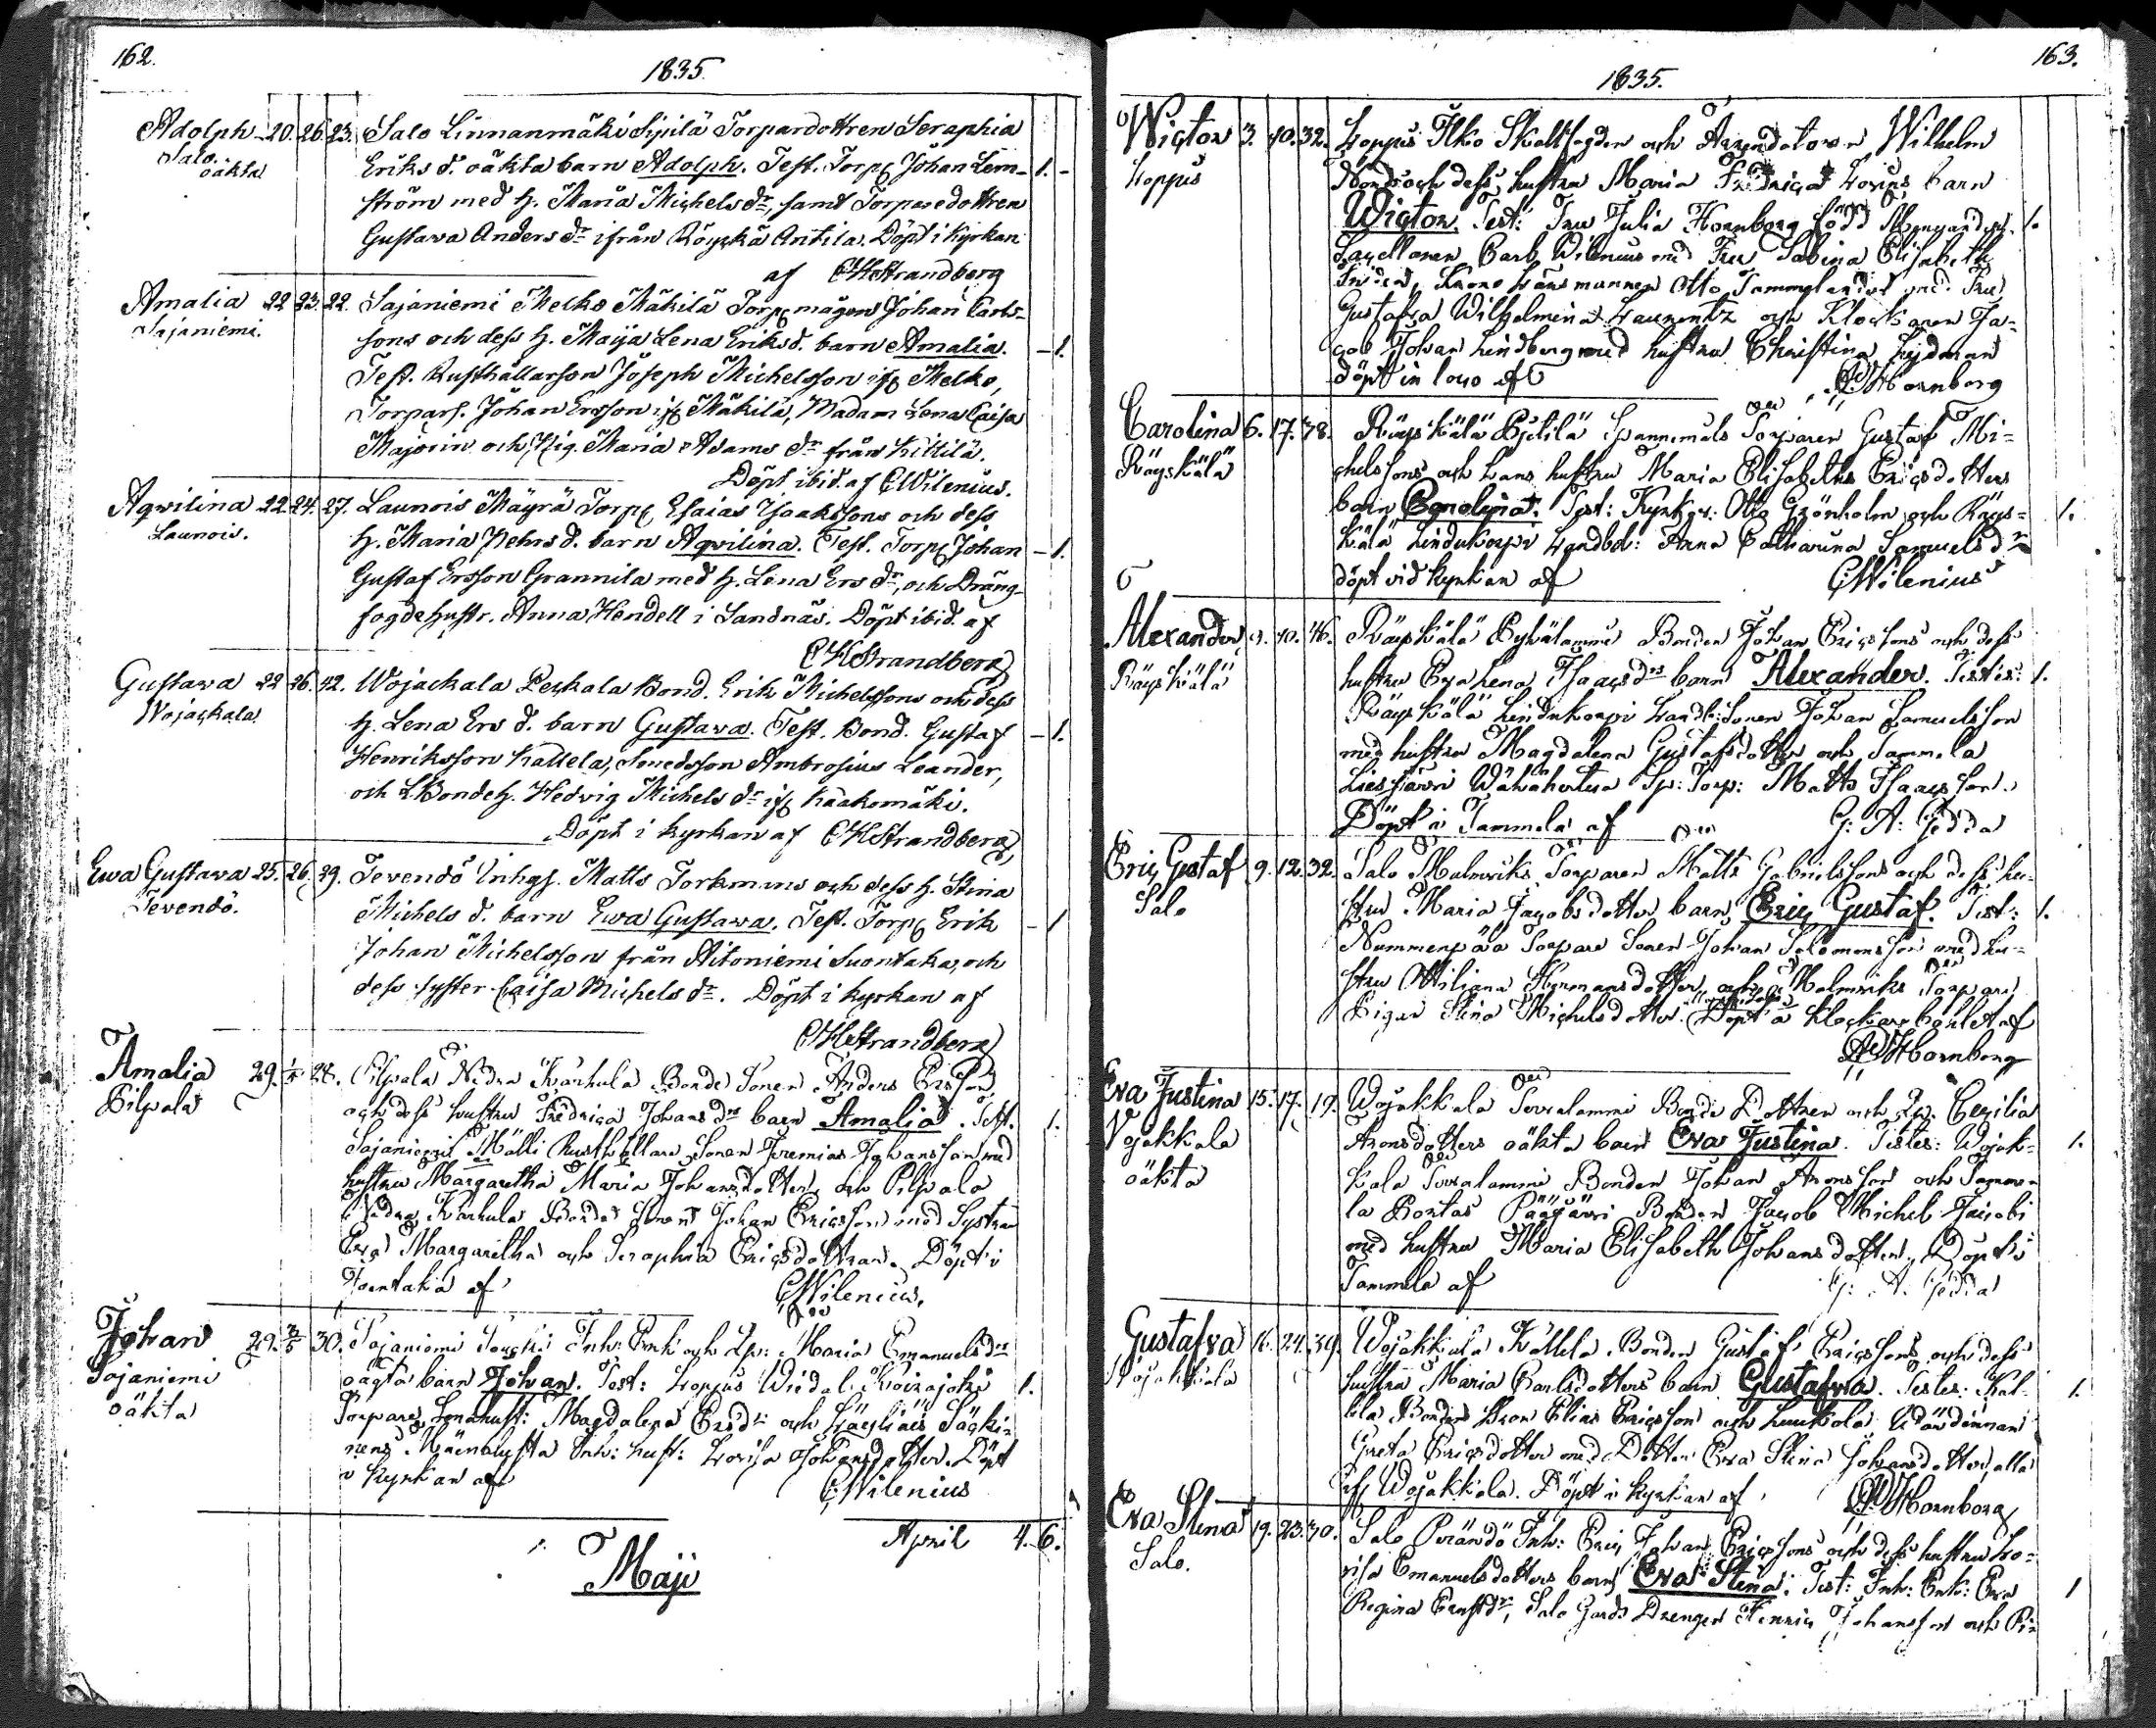 162.
1835.
Adolph 20. 26. 23. Salo Linnanmäki Sipilä Torpardottren Seraphia
Salo. Eriks d. oäkta barn Adolph. Test. Torp. Johan Lem- 1.
oäkta ström med h. Maria Michels dr, samt Torparedottren
Gustava Anders dr ifrån Röyskä Antila. Döpt i kyrkan
af CHStrandberg
Amalia 22 23. 22. Sajaniemi Melko Mäkilä Torp. mågen Johan Carls-
Sajaniemi. sons och dess h. Maija Lena Eriks d. barn Amalia. 1.
Test. Rusthållarson Joseph Michelsson if. Melko,
Torpars. Johan Ersson if. Mäkilä, Madam Lena Caisa
Majorin och Pig. Maria Adams dr från Kittilä.
Döpt ibid. af CWilenius.
Aqvilina 22. 24. 27. Launois Mäyrä Torp. Esaias Isaakssons och dess
Launois. h. Maria Pehrs d. barn Aqvilina. Test. Torp. Johan 1.
Gustaf Ersson Grannila med h. Lena Ers dr, och Dräng-
fogdehustr. Anna Hendell i Sandnäs. Döpt ibid. af
CHStrandberg
Gustava 22 26. 42. Wojackala Peskala Bond. Erik Michelssons och dess
Wojackala h. Lena Ers d. barn Gustava. Test. Bond. Gustaf 1.
Henriksson Kattela, Smedsson Ambrosius Leander,
och LBondeh. Hedvig Michels dr if. Kaakomäki.
Döpt i kyrkan af CHStrandberg
Ewa Gustava 25. 26. 29. Tevendö Inhys. Matts Torkmans och dess h. Stina
Tevendö. Michels d. barn Ewa Gustava. Test. Torp. Erik 1
Johan Michelsson från Aitoniemi Suontaka, och
dess syster Caisa Michels dr. Döpt i kyrkan af
CHStrandberg
Amalia 29. 1/4 28. Pilpala Nedra Karhula Bonde Sonen Anders Ersson
Pilpala och dess hustru Fredrica Johans dr barn Amalia. Test. 1.
Sajaniemi Mälli Rusthållare Sonen Jeremias Johansson med
hustru Margaretha Maria Johansdotter, och Pilpala
Nedra Karhula Bonde Sonen Johan Ericsson med Systra
Eva Margaretha och Seraphia Ericsdottrar. Döpt i
Tojentaka af CWilenius.
Johan 29. 3/5 30. Sajaniemi Inh: Enk och Maria Emanuels dr
Sajaniemi oägta barn Johan. Test: Loppis 1.
oäkta Torpare Sonahust: Magdalena Ers dr och
Inh: hust: Lovisa Johansdotter. Döpt
i Kyrkan af CWilenius
April 4. 6.
Maji
163.
1835.
Wictor 3. 10. 32. Loppis Ilko Skallfogden och Arrendatoren Wilhelm
Loppis och dess hustru Maria Fredrica barn
Wictor. Test: Fru Julia Hornborg född 1.
Capellanen Carl Wilenius med Fru Sabina Elisabeth
Krono Länsmannen Otto Tammelander med Fru
Gustafva Wilhelmina Laurentz och Klockaren Ja-
cob Johan Lindberg med hustru Christina
döpt in loco af Hornborg
Carolina 6. 17. 38. Räyskälä Pietilä Spannmåls Torparen Gustaf Mi-
Räyskälä chelssons och hans hustru Maria Elisabeths Ericsdotters
barn Carolina. Test: Otto Grönholm och Räys- 1.
kälä Lindukorpi Landbd: Anna Catharina Samuels dr
döpt vid kyrkan af CWilenius
Alexander 9. 10. 46. Räyskälä Bonden Johan Ericssons och dess
Räyskälä hustru Eva Lena Isaacs drs barn Alexander. Testes: 1.
Räyskälä Lindukorpi Landb: Sonen Johan Samuelsson
med hustru Magdalena Gustafsdotter och Tammela
Liesjärvi Sp: Torp: Matts Isaacsson.
Döpt i Tammela af G: A: Gedda
Eric Gustaf 9. 12. 32. Salo Malmriks Torparen Matts Gabrielssons och dess hu-
Salo stru Maria Jacobsdotter barn Eric Gustaf. Test: 1.
Nummenpää Torpare Sonen Johan Salomonsson med hu-
stru Hermansdotter, och Malmriks Torpare
Pigan Stina Michelsdotter. Döpt å Klockare bohlet af
Hornborg
Eva Justina 15. 17. 19. Wojakkala Sovalammi Bonde Dottren och Qp. Cecilia
Vojakkala Aronsdotters oäkta barn Eva Justina. Testes: Wojak- 1.
oäkta kala Sovalammi Bonden Johan Aronsson och Tamme-
la Portas Pääjärvi Bonden Jacob Michel Jacobi
med hustru Maria Elisabeth Johansdotter. Döpt i
Tammela af G. A. Gedda
Gustafva 16. 24. 39. Wojakkala Kallela Bonden Gustaf Ericssons och dess
Wojakkala hustru Maria Carlsdotters barn Gustafva. Testes: Kal- 1.
lela Bonden Elias Ericsson och
Greta Ericsdotter med Dotter Eva Stina Johansdotter, alla
if. Wojakkala. Döpt i kyrkan af Hornborg
Eva Stina 19. 23. 30. Salo Inh: Eric Johan Ericssons och dess hustru Lo-
Salo. visa Emanuelsdotters barn Eva Stina. Test: Inh: Enk: Eva 1
Regina Ernst dr, Salo Gårds Drengen Henric Johansson och Pi-